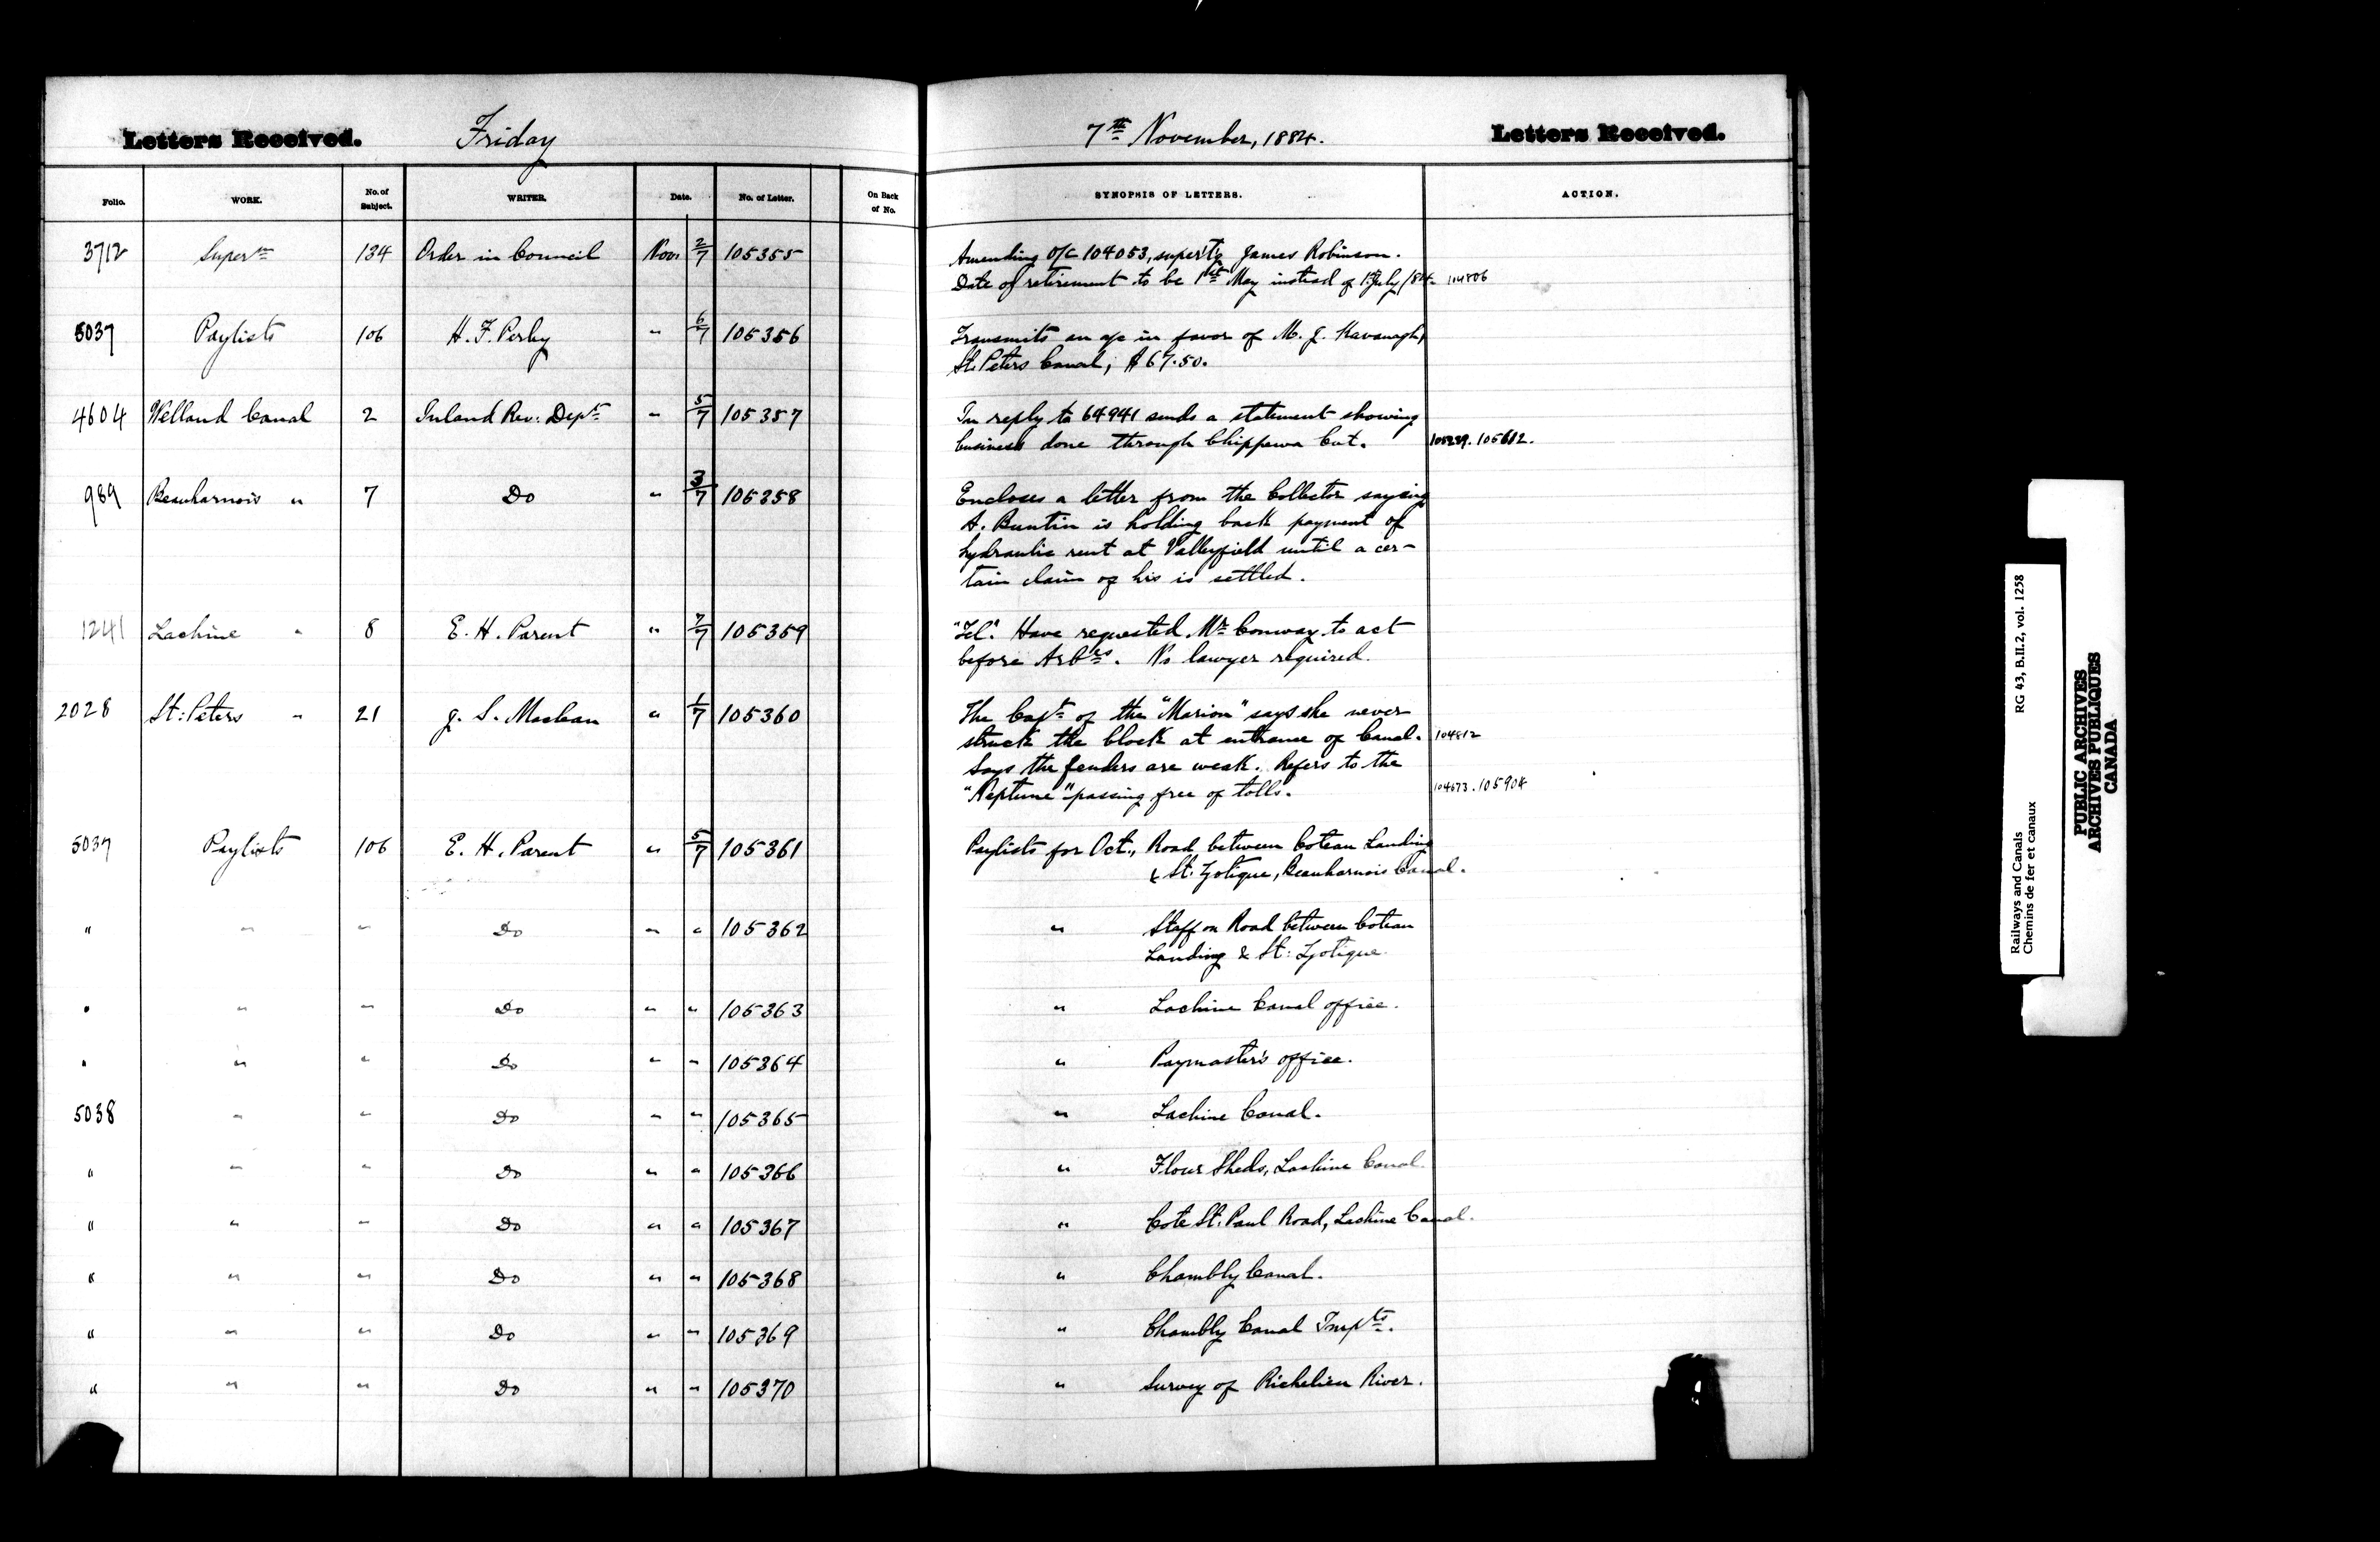 Letters Received. Friday 7th November, 1884. Letters Received.
Folio. WORK. No. of Subject. WRITER. Date. No. of Letter. On Back of No. SYNOPSIS OF LETTERS. ACTION.
3712 Superⁿ 134 Order in Council Nov. 2/7 105355 Amending O/C 104053, super'tg James Robinson.
Date of retirement to be 1st May instead of 1st July /84. 104806
5037 Paylists 106 H. F. Perley " 6/7 105356 Transmits an a/c in favor of M. J. Kavanagh,
St. Peters Canal; $67.50.
4604 Welland Canal 2 Inland Rev: Dept " 5/7 105357 In reply to 64941 sends a statement showing
business done through Chippewa Cut. 105239. 105612.
989 Beauharnois " 7 Do " 3/7 105358 Encloses a letter from the Collector saying
A. Buntin is holding back payment of
hydraulic rent at Valleyfield until a cer-
tain claim of his is settled.
1241 Lachine " 8 E. H. Parent " 7/7 105359 "Tel". Have requested Mr Conway to act
before Arbtrs. No lawyer required.
2028 St: Peters " 21 J. S. Maclean " 1/7 105360 The Capt of the "Marion" says she never
struck the block at entrance of Canal. 104812
Says the fenders are weak. Refers to the
"Neptune" passing free of tolls. 104673. 105904
5037 Paylists 106 E. H. Parent " 5/7 105361 Paylists for Oct., Road between Coteau Landing
& St. Zotique, Beauharnois Canal.
" " " Do " " 105362 " Staff on Road between Coteau
Landing & St: Zotique.
" " " Do " " 105363 " Lachine Canal office.
" " " Do " " 105364 " Paymaster's office.
5038 " " Do " " 105365 " Lachine Canal.
" " " Do " " 105366 " Flour Sheds, Lachine Canal.
" " " Do " " 105367 " Cote St. Paul Road, Lachine Canal.
" " " Do " " 105368 " Chambly Canal.
" " " Do " " 105369 " Chambly Canal Impts.
" " " Do " " 105370 " Survey of Richelieu River.
Railways and Canals RG 43, B.II.2, vol. 1258
Chemins de fer et canaux
PUBLIC ARCHIVES
ARCHIVES PUBLIQUES
CANADA